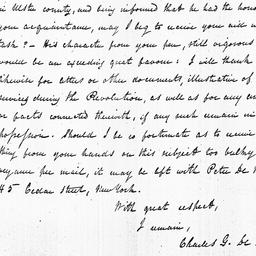 in Ulster county, and being informed that he had the hono
your acquaintance, may I beg to receive your aid in
task? – His character from your pen, still vigorous
would be an exceeding great favour: I will thank
likewise for letters or other documents, illustrative of
services during the Revolution, as well as for any
or facts connected therewith, if any such remain in
possession. Should I be so fortunate as to receive
thing from your hands on this subject too bulky
per mail, it may be left with Peter De
45 Cedar Street, New York.
With great respect,
I remain,
Charles G. De